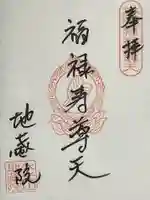 奉拝
福禄寿尊天
地蔵院